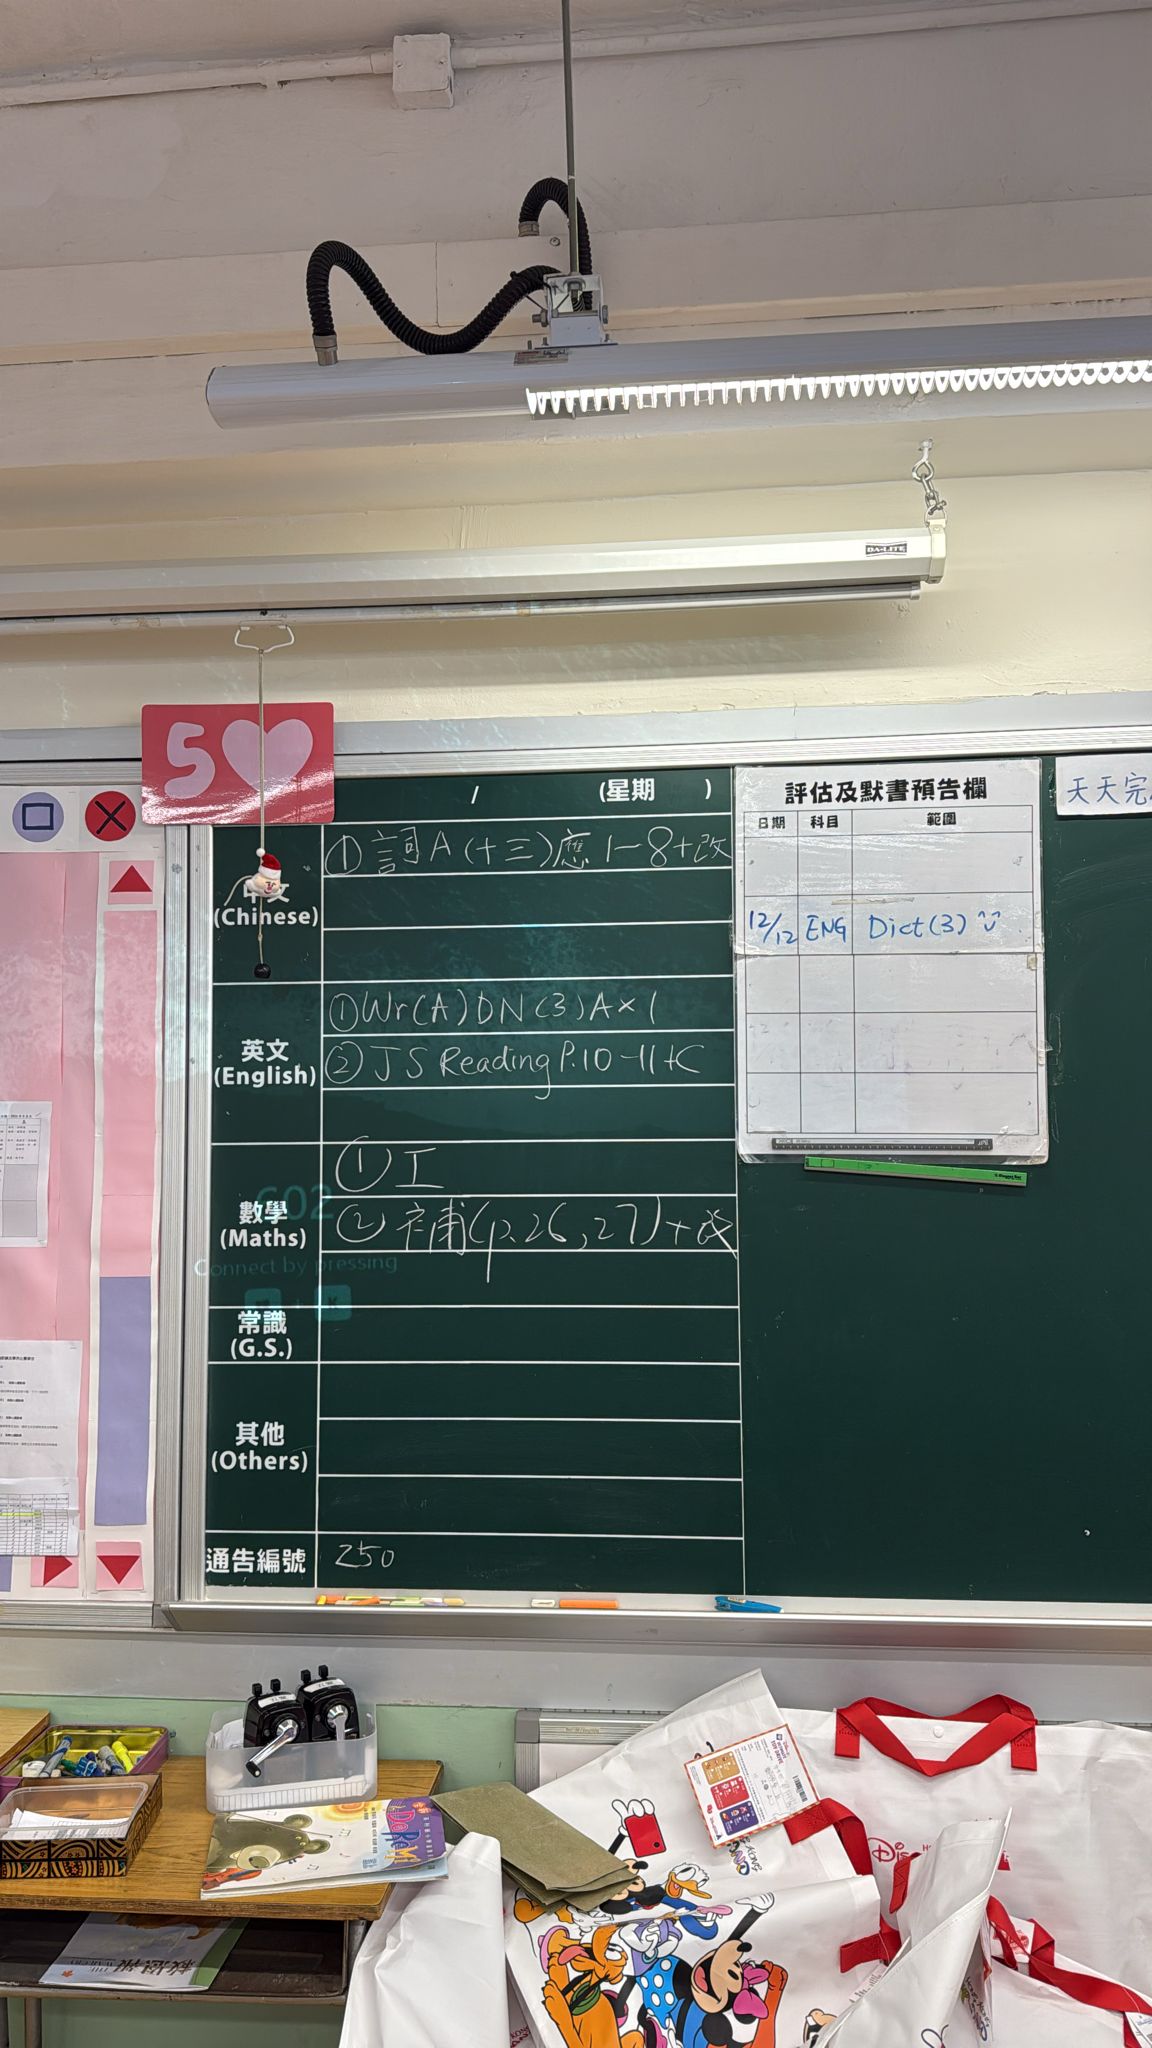 DA-LITE
5
/ (星期 )
中文
(Chinese)
① 詞A(十三)應1-8+改
英文
(English)
① Wr(A) DN(3)A×1
② JS Reading P.10-11+C
數學
(Maths)
① 工
② 補(p.26,27)+改
602
Connect by pressing
常識
(G.S.)
其他
(Others)
通告編號
250
評估及默書預告欄
日期 科目 範圍
12/12 ENG Dict(3)
天天完
DoReMi